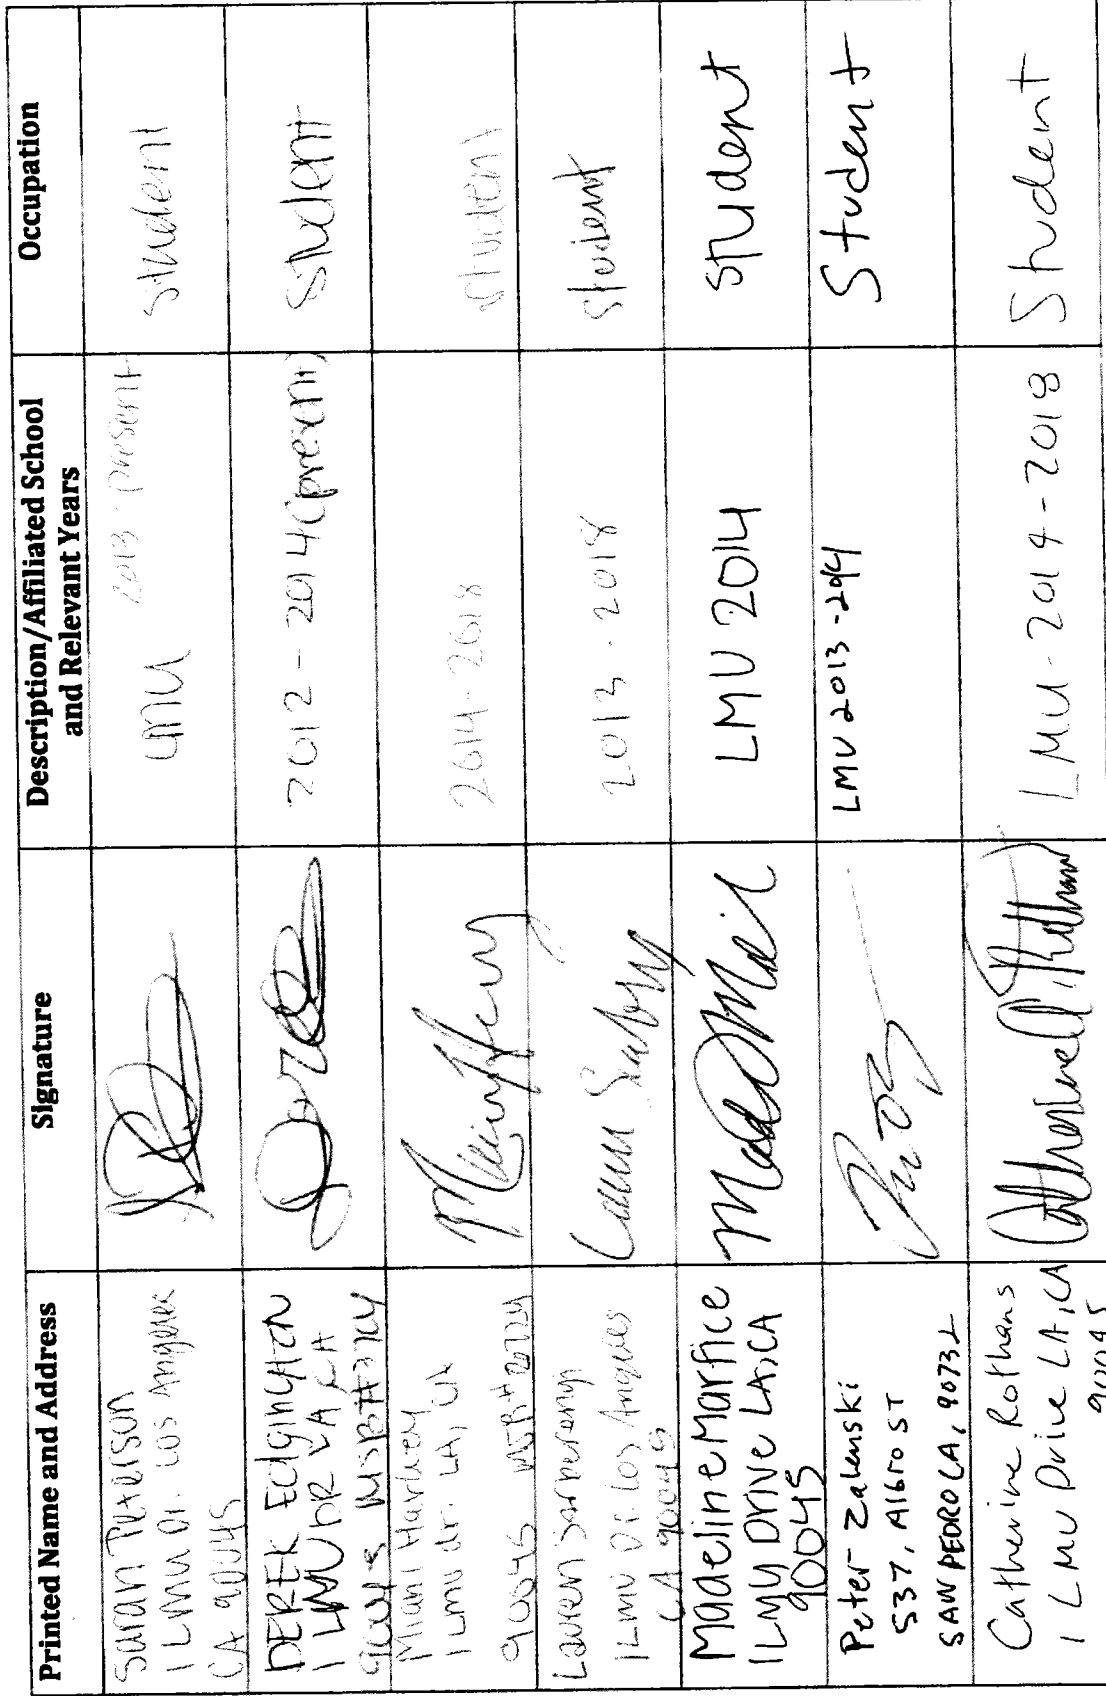 Printed Name and Address
Signature
Description/Affiliated School
and Relevant Years
Occupation
Sarah Peterson
1 LMU Dr. Los Angeles
CA 90045
LMU 2013 present
student
DEREK Edgington
1 LMU DR LA, CA
90045
2012 - 2014 (present)
Student
Miani
1 Lmu dr. LA, CA
90045
2014-2018
student
Lauren
1 LMU Dr. Los Angeles
CA 90045
2013-2018
student
Madeline Marfice
1 LMU Drive LA, CA
90045
LMU 2014
Student
Peter Zalenski
537, Albro ST
SAN PEDRO CA, 90732
LMU 2013-2014
Student
Catherine Rothans
1 LMU Drive LA, CA
90045
LMU-2014-2018
Student